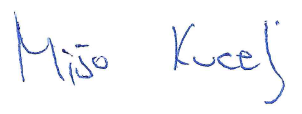 Mijo Kucelj